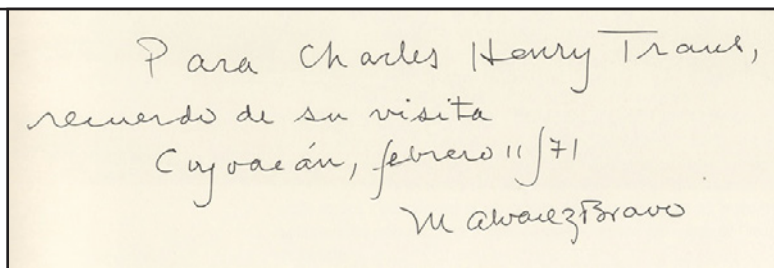 Para Charles Henry Traub,
recuerdo de su visita
Coyoacán, febrero 11/71
M Alvarez Bravo